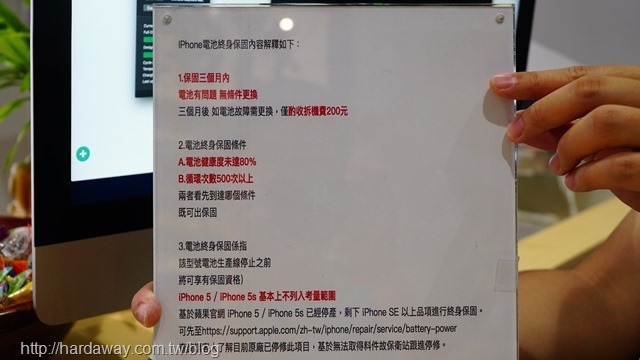 iPhone電池終身保固內容解釋如下：
1.保固三個月內
電池有問題 無條件更換
三個月後 如電池故障需更換，僅酌收拆機費200元
2.電池終身保固條件
A.電池健康度未達80%
B.循環次數500次以上
兩者看先到達哪個條件
既可出保固
3.電池終身保固係指
該型號電池生產線停止之前
將可享有保固資格）
iPhone 5 / iPhone 5s 基本上不列入考量範圍
基於蘋果官網 iPhone 5 / iPhone 5s 已經停產，剩下 iPhone SE 以上品項進行終身保固。
可先至https://support.apple.com/zh-tw/iphone/repair/service/battery-power
了解目前原廠已停修此項目，基於無法取得料件故保衛站跟進停修。
http://hardaway.com.tw/blog